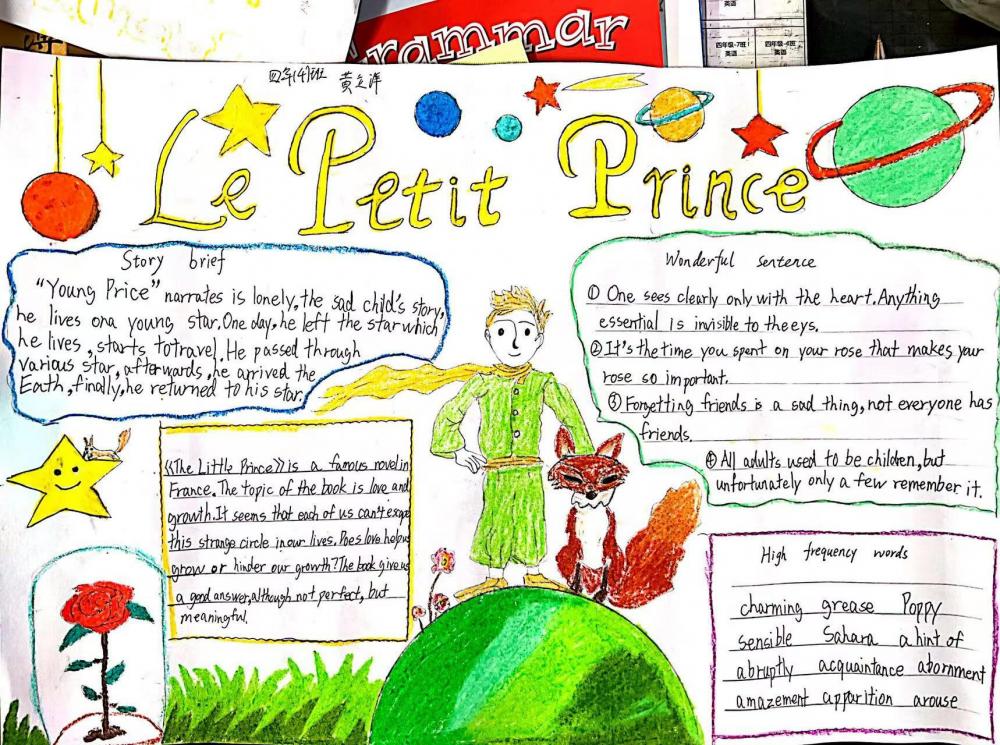 Grammar
四年级-7班
英语
四年级-6班
英语
英语
四年(4)班 黄立洋
Le Petit Prince
Story brief
"Young Price" narrates is lonely, the sad child's story,
he lives on a young star. One day, he left the star which
he lives, starts to travel. He passed through
various star, afterwards, he arrived the
Eath, finally, he returned to his star.
Wonderful sentence
① One sees clearly only with the heart. Anything
essential is invisible to the eys.
② It's the time you spent on your rose that makes your
rose so important.
③ Forgetting friends is a sad thing, not everyone has
friends.
④ All adults used to be children, but
unfortunately only a few remember it.
《The Little Prince》 is a famous novel in
France. The topic of the book is love and
growth. It seems that each of us can't escape
this strange circle in our lives. Does love help us
grow or hinder our growth? The book give us
a good answer, although not perfect, but
meaningful.
High frequency words
charming grease Poppy
sensible Sahara a hint of
abruptly acquaintance abornment
amazement apparition arouse